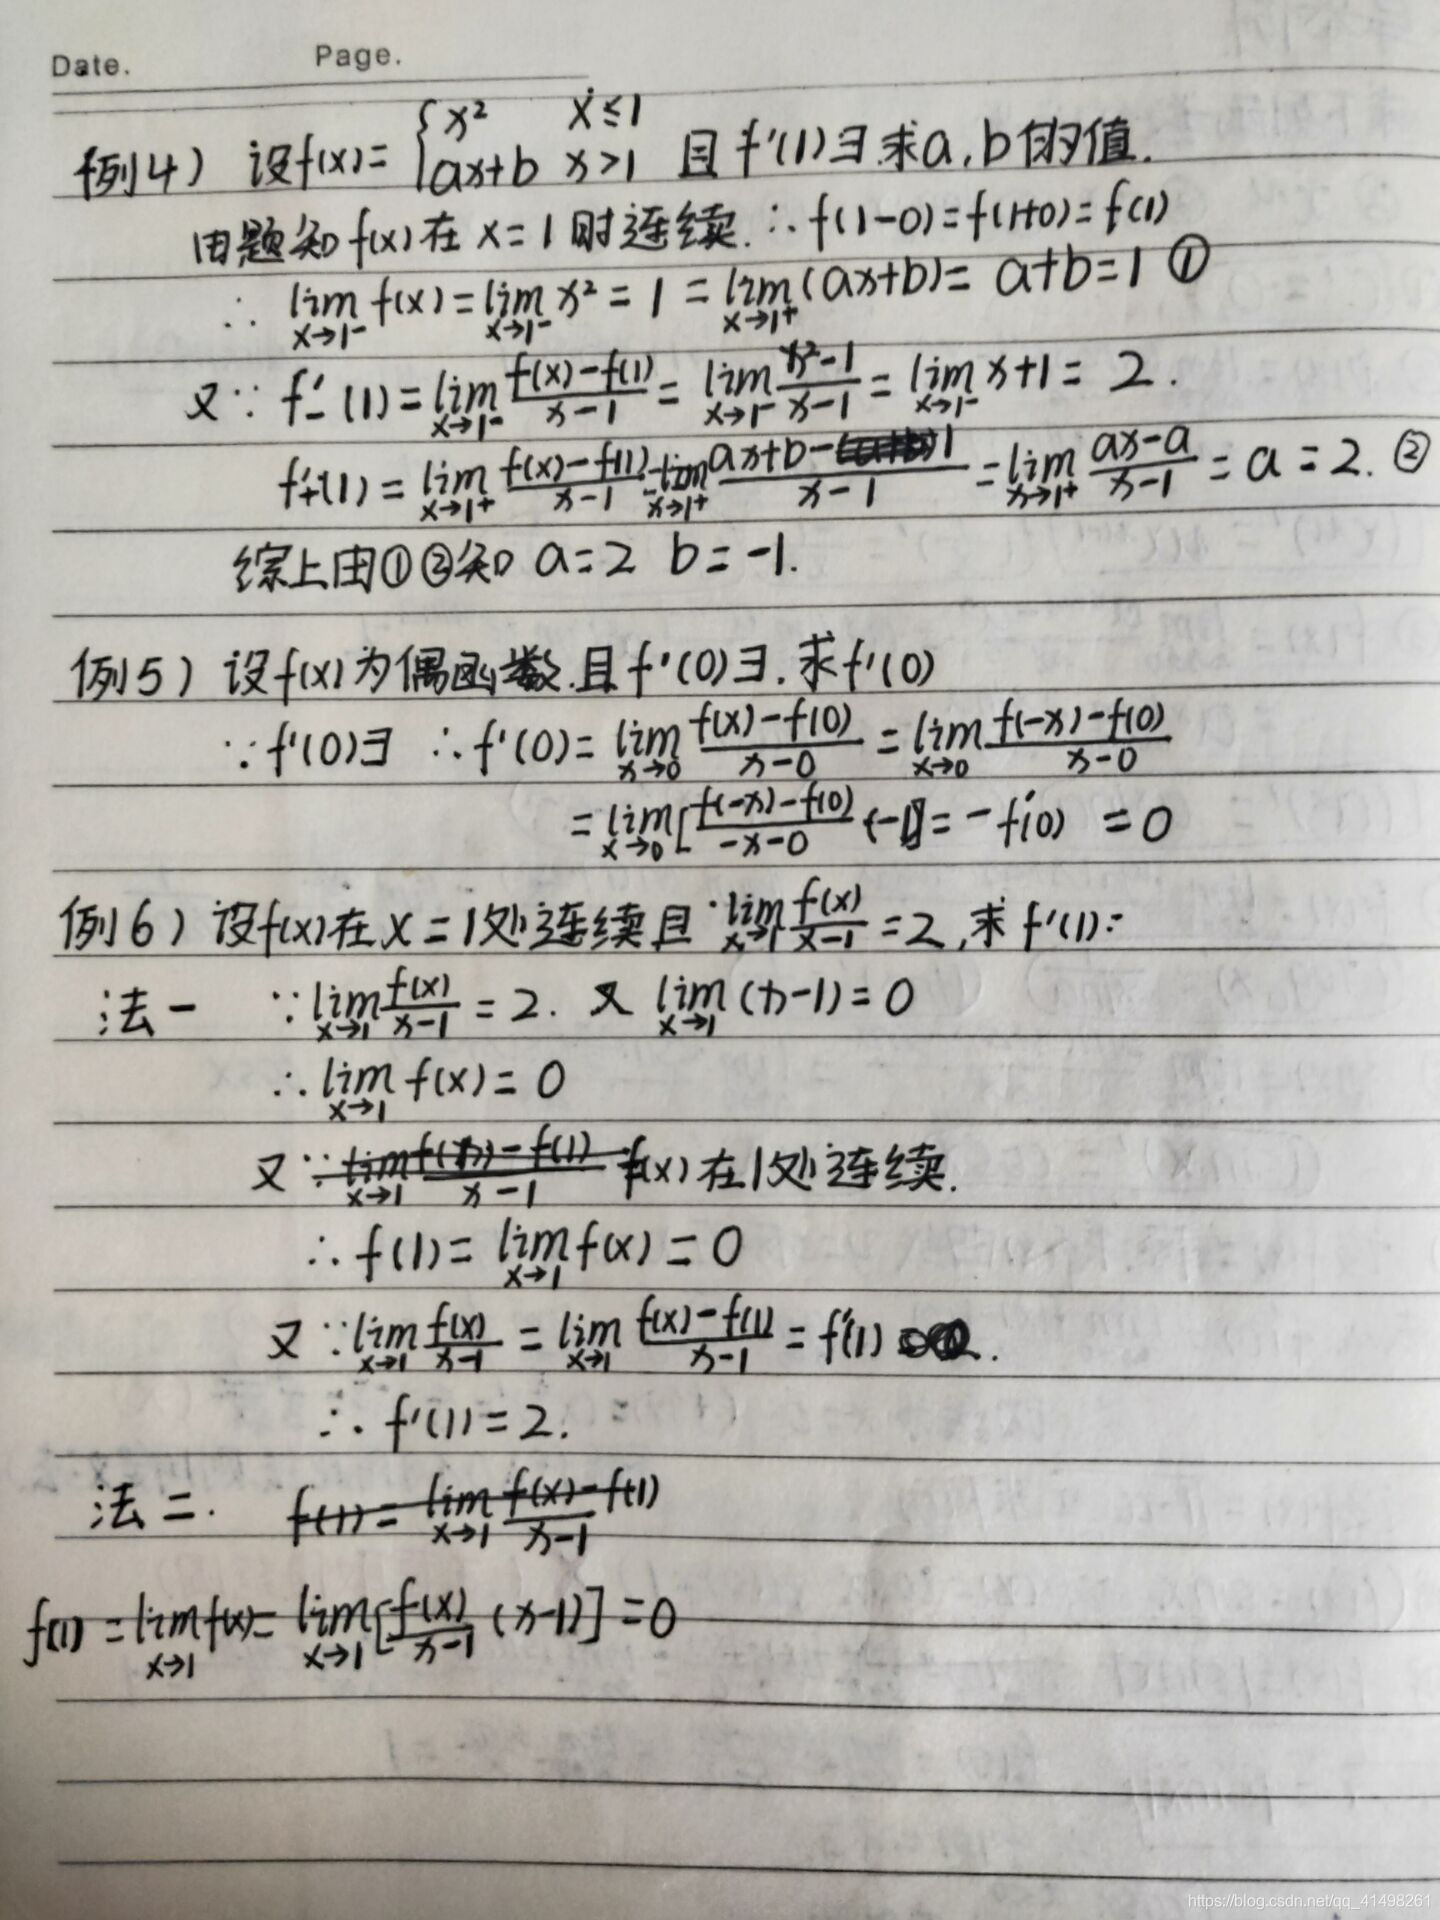 Date. Page.
例4) 设f(x)= { x² x≤1
ax+b x>1 且f'(1)∃.求a,b的值.
由题知f(x)在x=1时连续.∴f(1-0)=f(1+0)=f(1)
∴ lim x→1⁻ f(x)=lim x→1⁻ x²=1=lim x→1⁺ (ax+b)=a+b=1 ①
又∵ f'₋(1)=lim x→1⁻ (f(x)-f(1))/(x-1)=lim x→1⁻ (x²-1)/(x-1)=lim x→1⁻ x+1=2.
f'₊(1)=lim x→1⁺ (f(x)-f(1))/(x-1)=lim x→1⁺ (ax+b-1)/(x-1)=lim x→1⁺ (ax-a)/(x-1)=a=2. ②
综上由①②知 a=2 b=-1.
例5) 设f(x)为偶函数.且f'(0)∃.求f'(0)
∵f'(0)∃ ∴f'(0)=lim x→0 (f(x)-f(0))/(x-0)=lim x→0 (f(-x)-f(0))/(x-0)
=lim x→0 [(f(-x)-f(0))/(-x-0) (-1)]=-f'(0) =0
例6) 设f(x)在x=1处连续且 lim x→1 f(x)/(x-1)=2,求f'(1):
法一 ∵lim x→1 f(x)/(x-1)=2. 又 lim x→1 (x-1)=0
∴lim x→1 f(x)=0
又∵ lim x→1 (f(x)-f(1))/(x-1) f(x)在1处连续.
∴f(1)=lim x→1 f(x)=0
又∵lim x→1 f(x)/(x-1)=lim x→1 (f(x)-f(1))/(x-1)=f'(1).
∴f'(1)=2.
法二. f(1)=lim x→1 (f(x)-f(1))/(x-1)
f(1)=lim x→1 f(x)=lim x→1 [f(x)/(x-1) (x-1)]=0
https://blog.csdn.net/qq_41498261